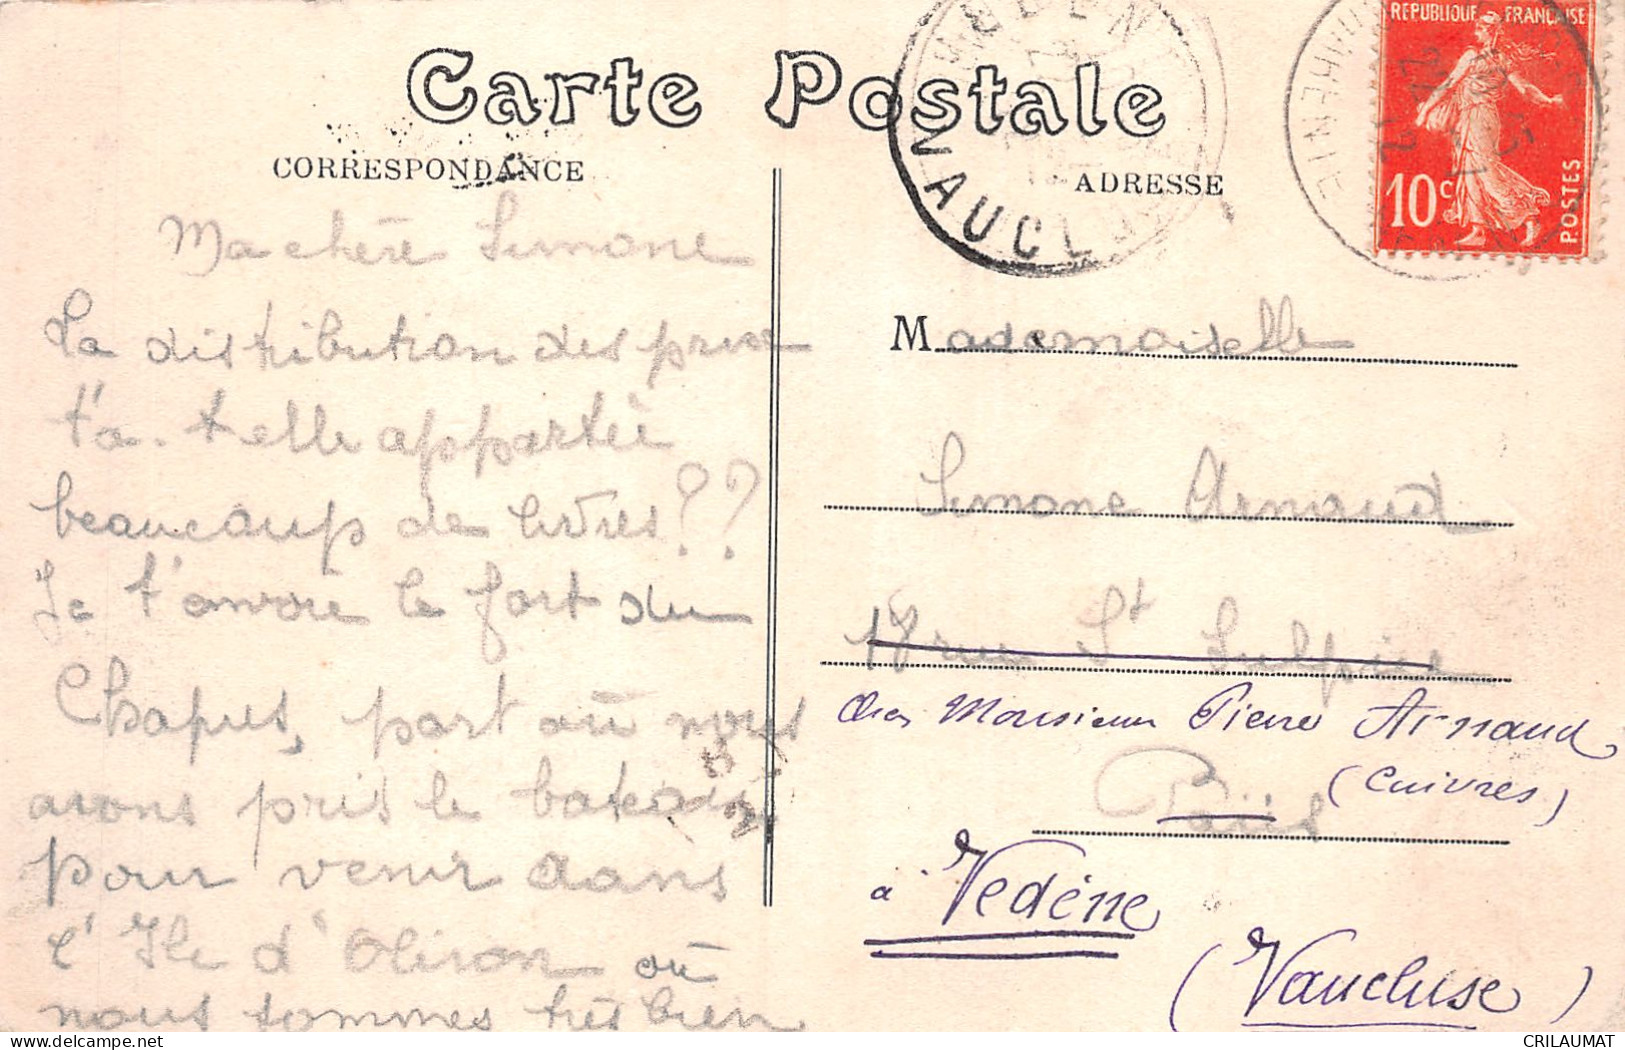 Carte Postale
CORRESPONDANCE
ADRESSE
REPUBLIQUE FRANÇAISE
10c
POSTES
VEDENE
VAUCLUSE
INFERIEURE
Ma chère Simone
La distribution des prix
t'a-telle apportée
beaucoup de livres ??
Je t'envoie le fort du
Chapus, port où nous
avons pris le bateau
pour venir dans
l'Ile d'Oléron où
nous sommes très bien
Mademoiselle
Simone Arnaud
18 rue St Sulpice
Chez Monsieur Pierre Arnaud
(Cuivres)
Paris
à Vedène
(Vaucluse)
CRILAUMAT